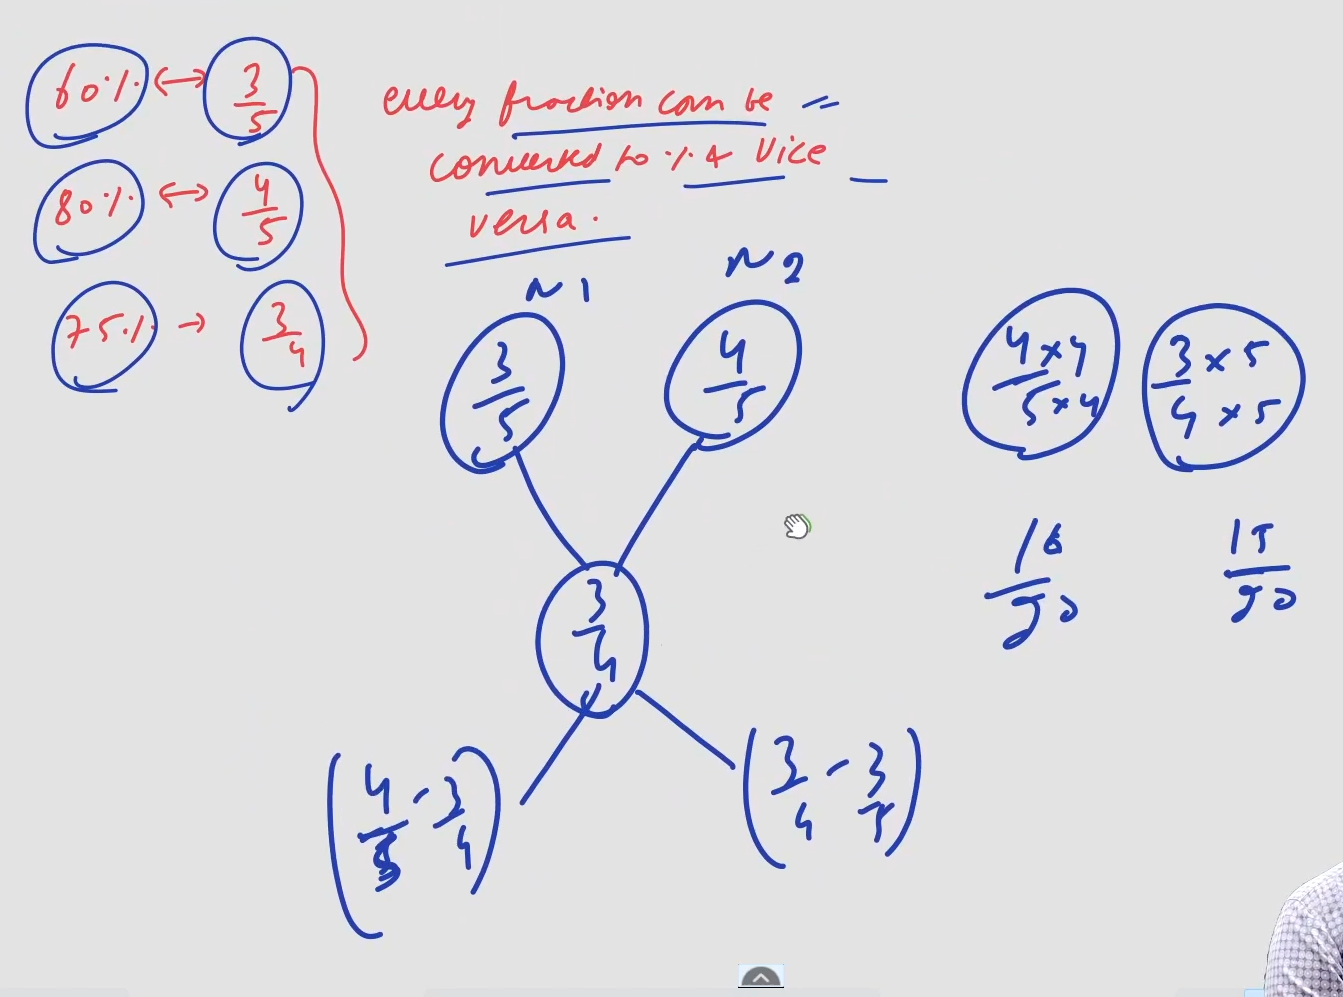 60% ↔ 3/5
80% ↔ 4/5
75% → 3/4
every fraction can be
converted to % & vice
versa.
N1
N2
3/5
4/5
3/4
(4/5 - 3/4)
(3/4 - 3/5)
4×4/5×4
3×5/4×5
16/20
15/20